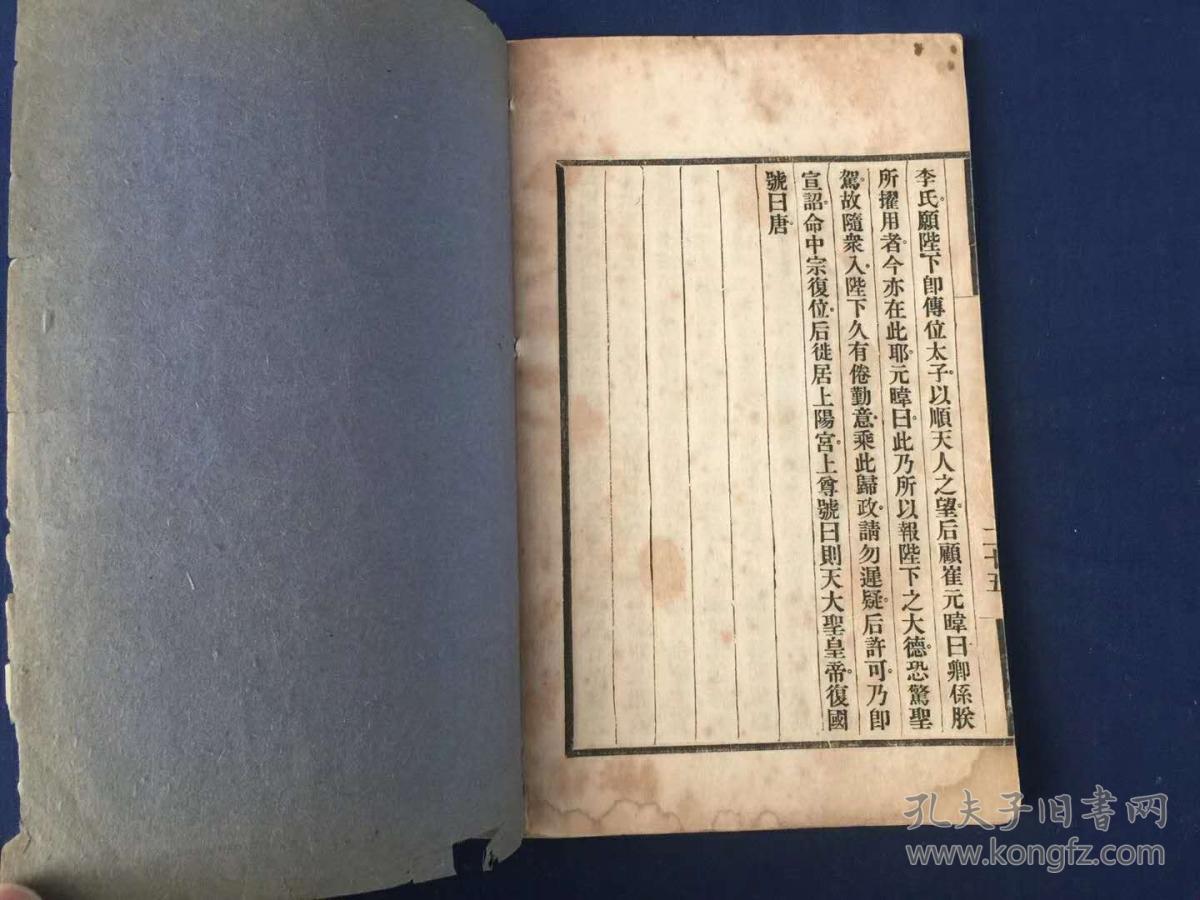 李氏。願陛下卽傳位太子。以順天人之望。后顧崔元暐曰。卿係朕
所擢用者。今亦在此耶。元暐曰。此乃所以報陛下之大德。恐驚聖
駕。故隨衆入。陛下久有倦勤意。乘此歸政。請勿遲疑。后許可。乃卽
宣詔。命中宗復位。后徙居上陽宮。上尊號曰則天大聖皇帝。復國
號曰唐。
二十五
孔夫子旧书网
www.kongfz.com